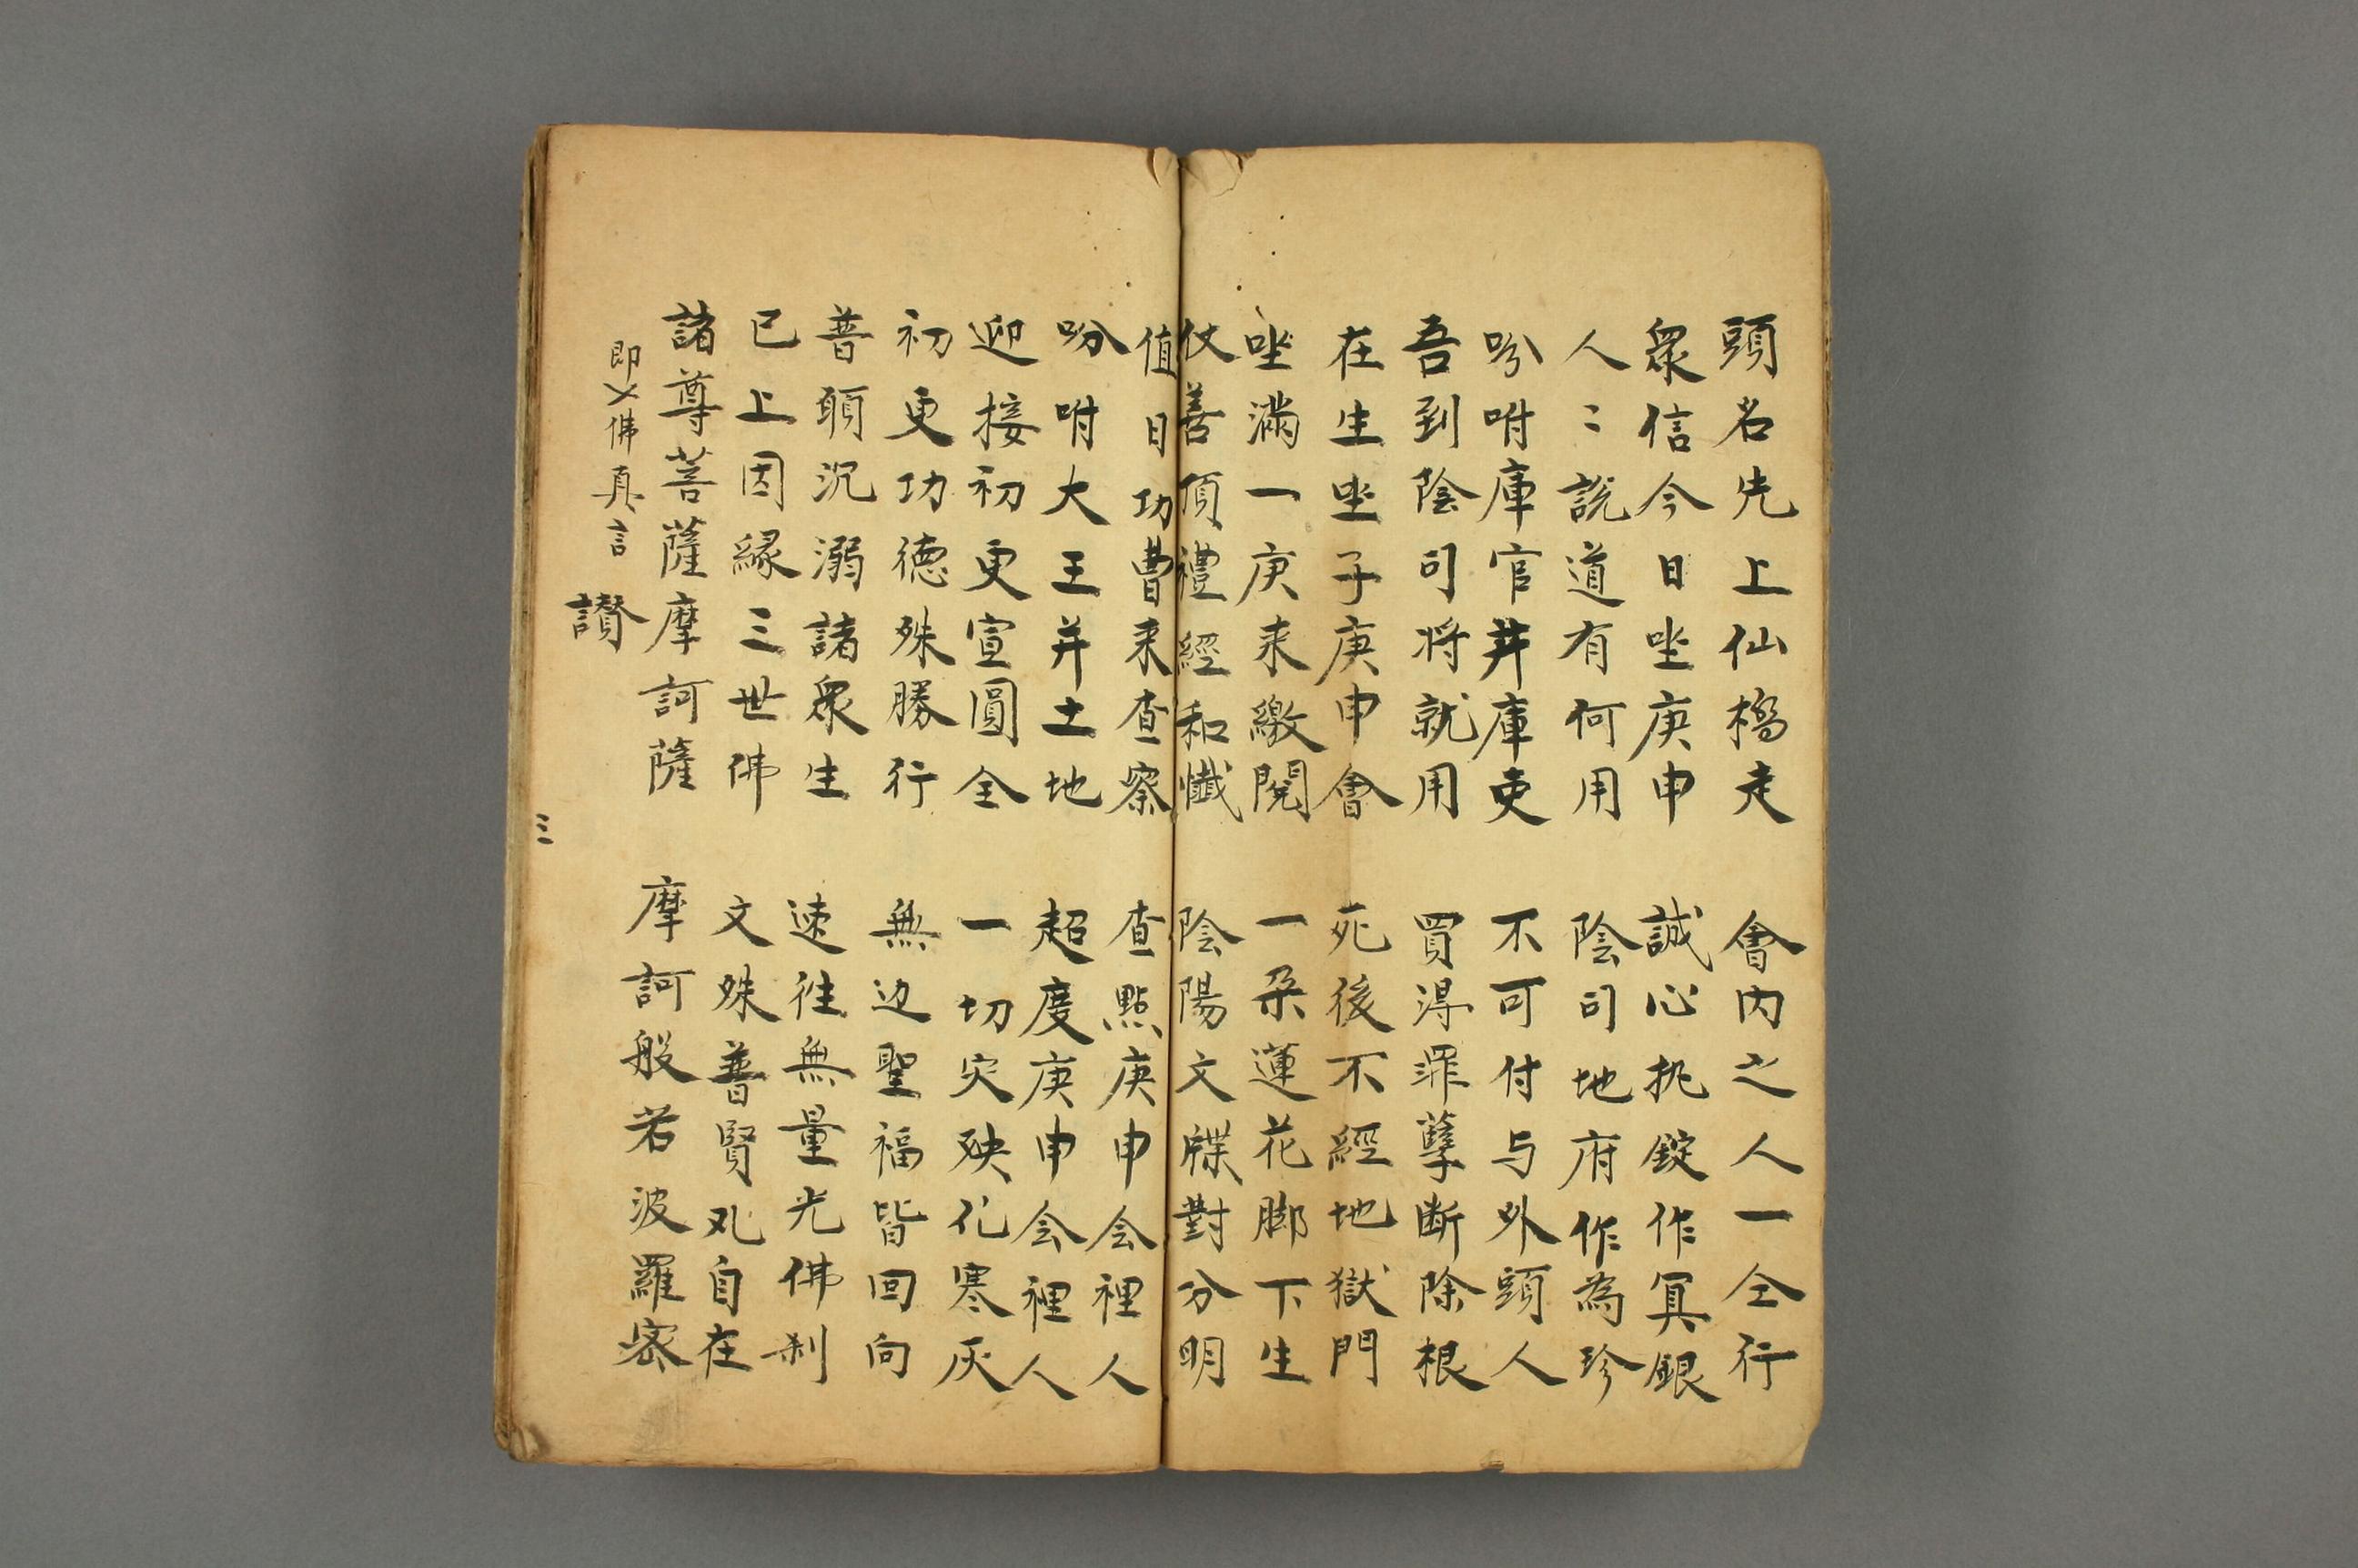 頭名先上仙橋走　會內之人一仝行
眾信今日坐庚申　誠心執錠作冥銀
人〻說道有何用　陰司地府作為珍
吩咐庫官并庫吏　不可付与外頭人
吾到陰司將就用　買淂罪孽断除根
在生坐子庚申會　死後不經地獄門
坐滿一庚来繳閱　一朵蓮花腳下生
仗善頂禮經和懺　陰陽文牒對分明
值日功曹来查察　查點庚申会裡人
吩咐大王并土地　超度庚申会裡人
迎接初更宣圓全　一切灾殃化寒灰
初更功德殊勝行　無边聖福皆回向
普願沉溺諸眾生　速往無量光佛刹
已上因緣三世佛　文殊普賢观自在
諸尊菩薩摩訶薩　摩訶般若波羅密
即〤佛真言　讃
三